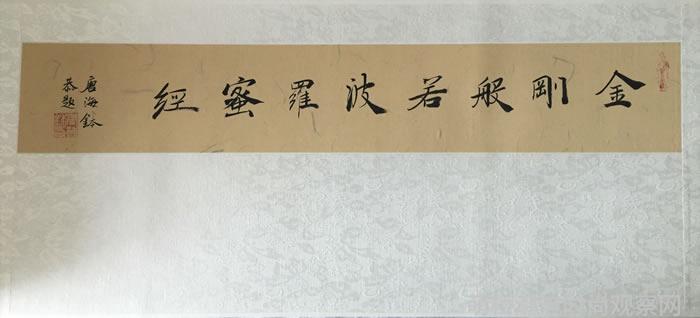 金剛般若波羅蜜經
唐海
恭題
观察网